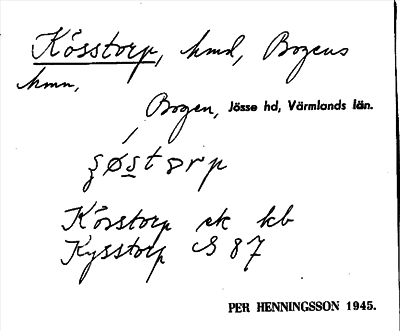 Kösstorp, hmd, Bogens
hmn,
Bogen, Jösse hd, Värmlands län.
Kösstorp ek kb
Kysstorp S 87
PER HENNINGSSON 1945.